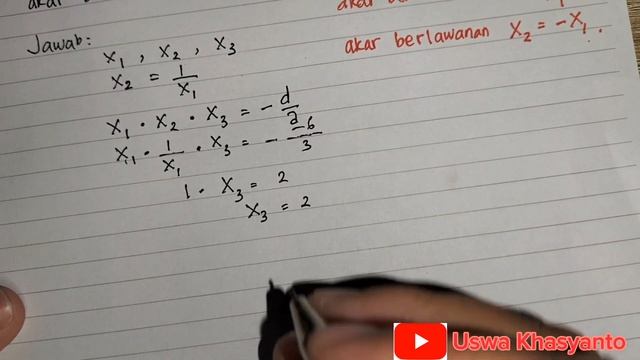 akar
akar
Jawab: x₁ , x₂ , x₃
akar berlawanan x₂ = -x₁.
x₂ = 1/x₁
x₁ · x₂ · x₃ = - d/a
x₁ · 1/x₁ · x₃ = - -6/3
1 · x₃ = 2
x₃ = 2
Uswa Khasyanto